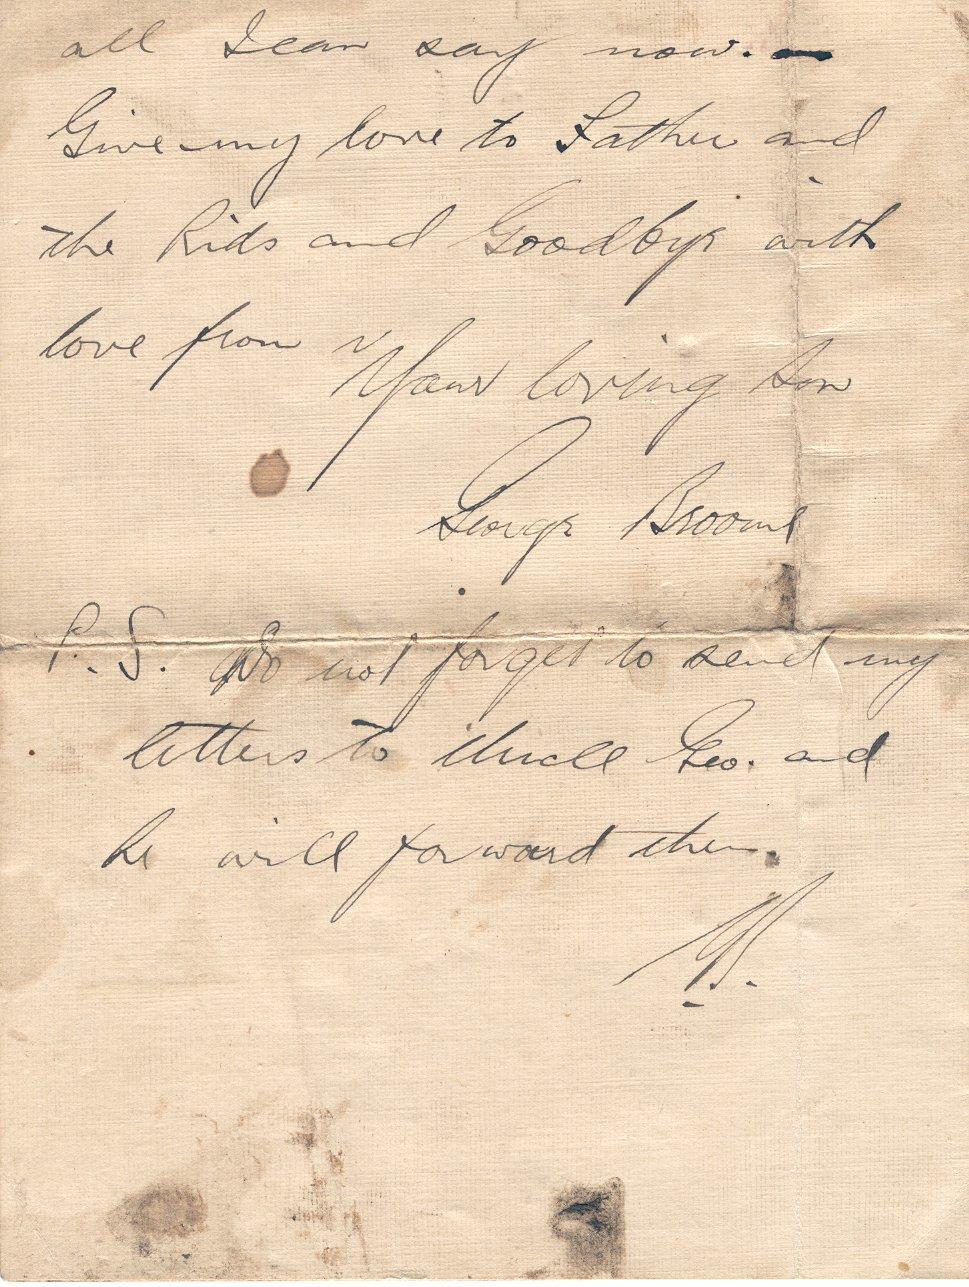 all I can say now. —
Give my love to Father and
the Kids and Goodbye with
love from
Your loving Son
George Broome
P.S. Do not forget to send my
letters to Uncle Geo. and
he will forward them.